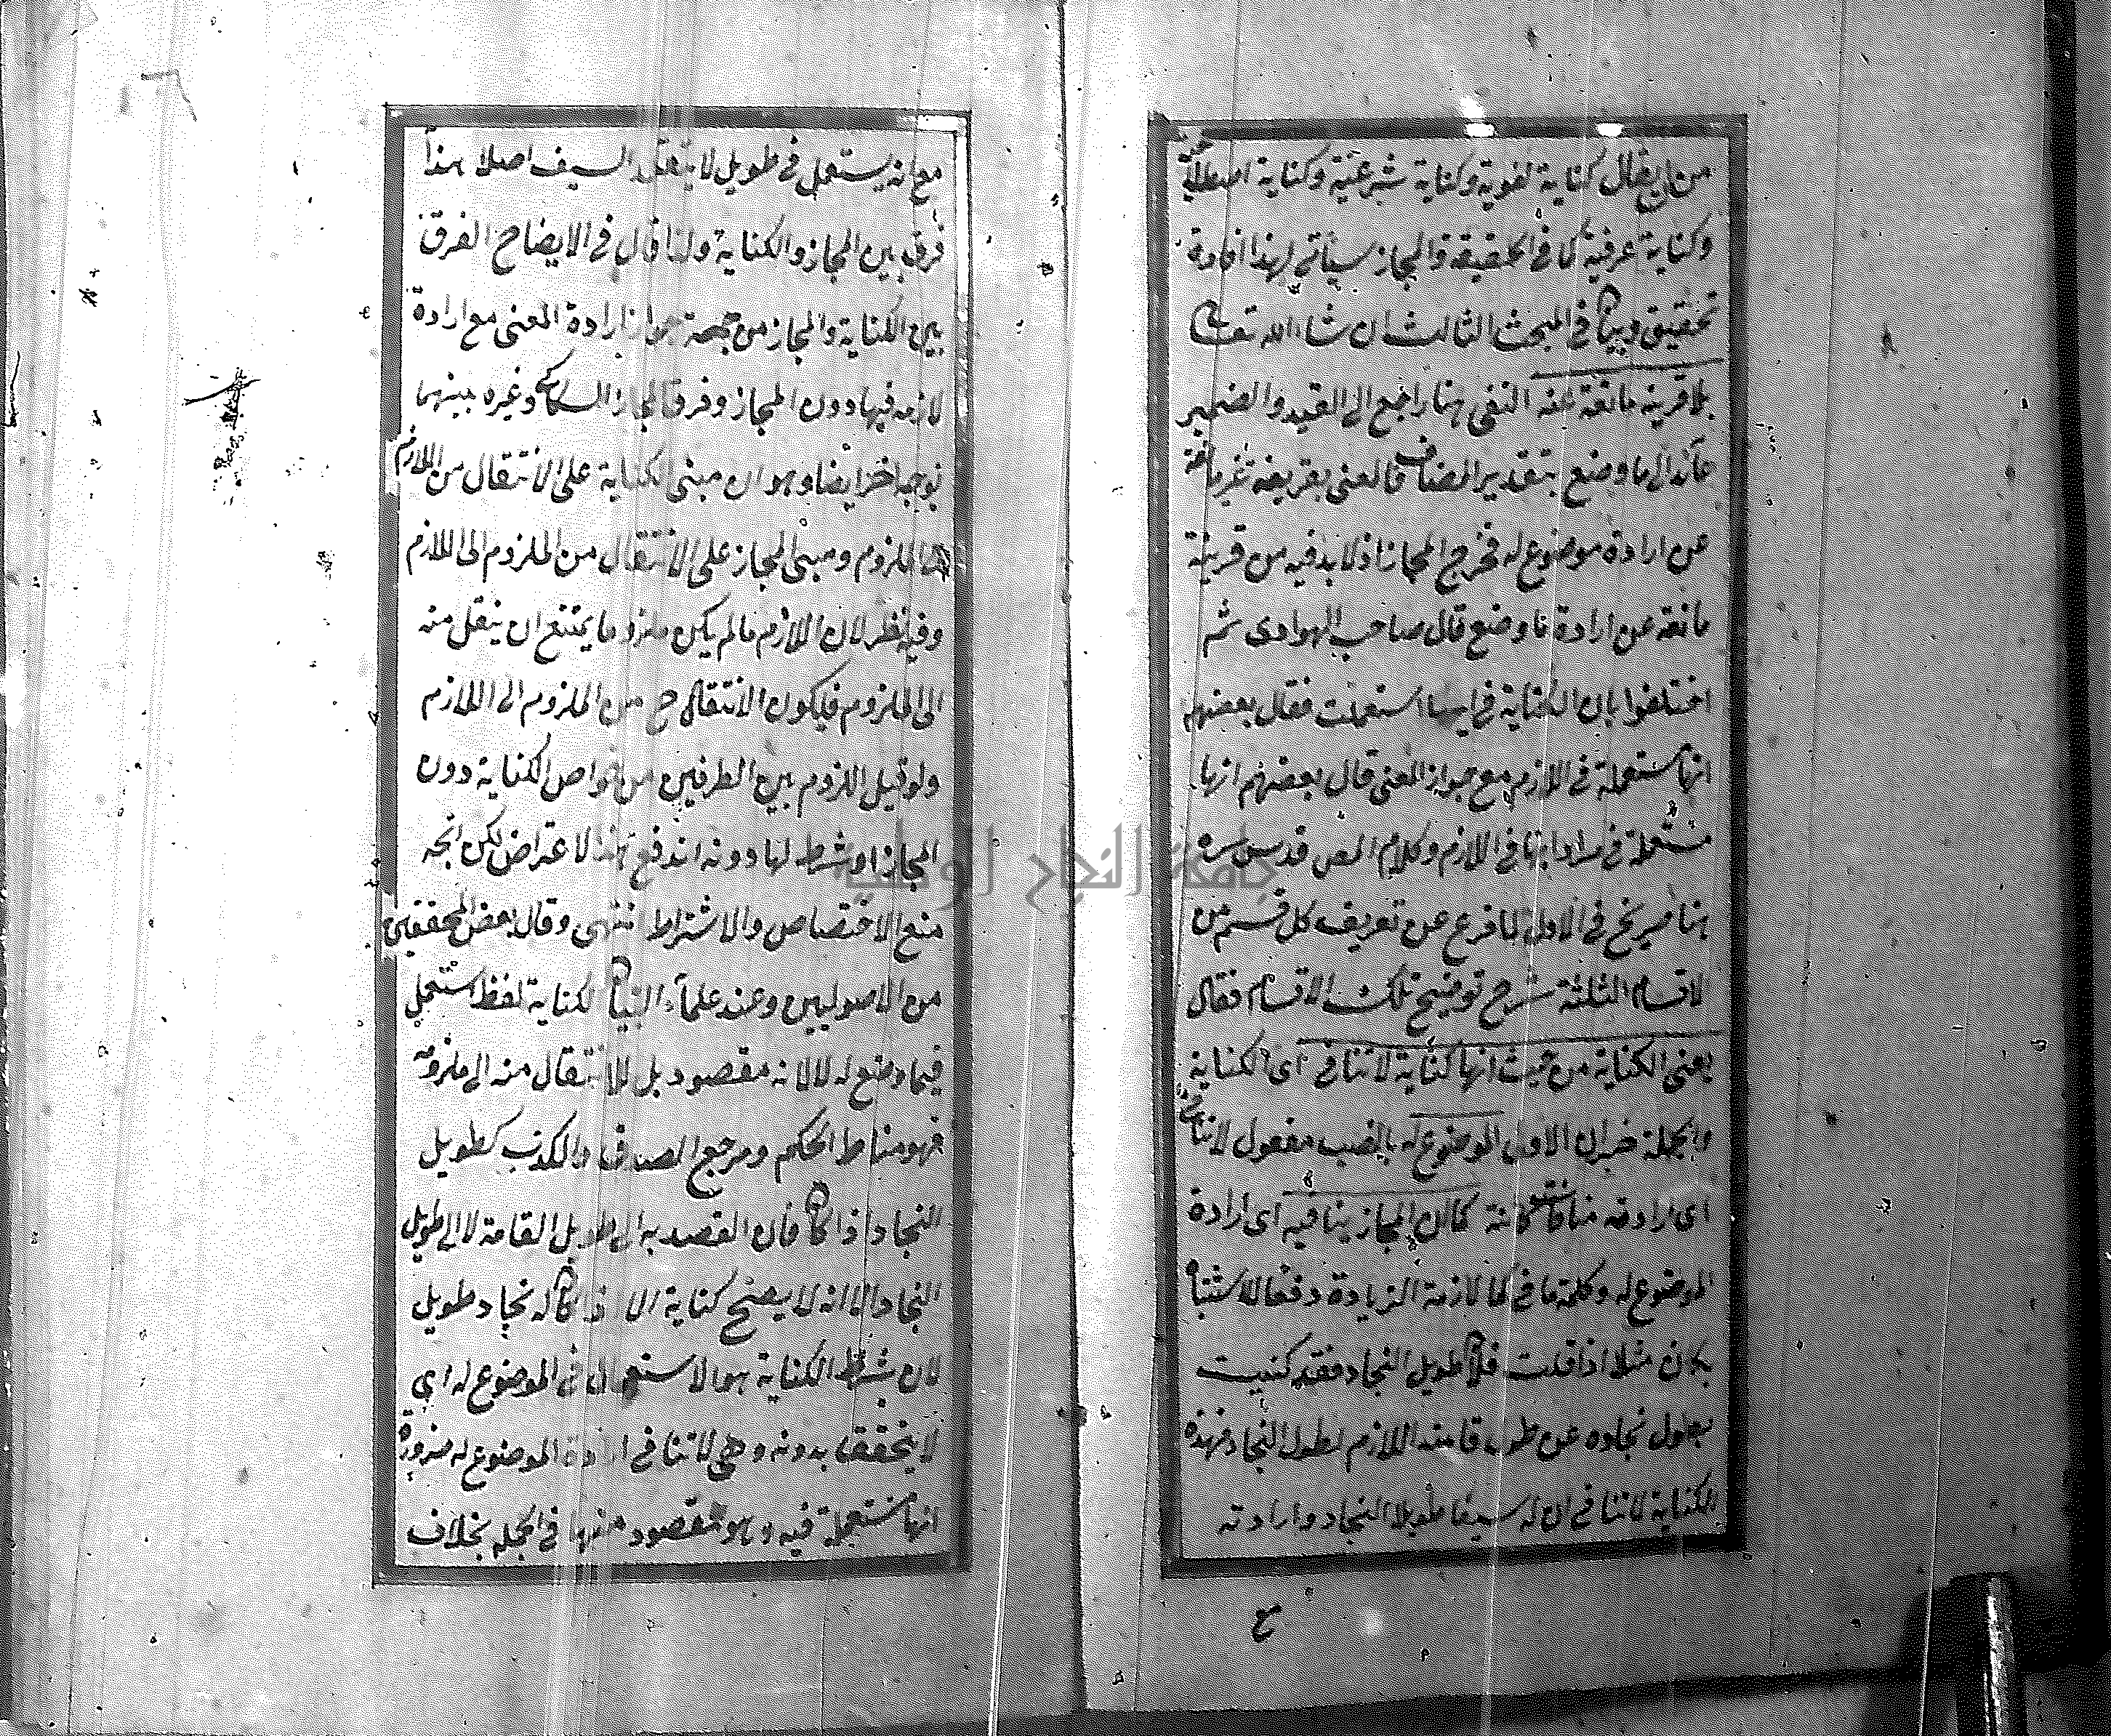 من ان يقال كناية لغوية وكناية شرعية وكناية اصطلاحية
وكناية عرفية كما في الحقيقة والمجاز سيأتي لهذا افادة
تحقيق وبيان في المبحث الثالث ان شاء الله تعالى
بلا قرينة مانعة عنه النفي هنا راجع الى القيد والضمير
عائد الى ما وضع بتقدير المضاف فالمعنى بقرينة غير مانعة
عن ارادة موضوع له فخرج المجاز اذ لا بد فيه من قرينة
مانعة عن ارادة ما وضع قال صاحب الهوادى ثم
اختلفوا بان الكناية في ايهما استعملت فقال بعضهم
انها مستعملة في اللازم مع جواز المعنى قال بعضهم انها
مستعملة في مراد بها في اللازم وكلام المص قدس سره
هنا صريح في الاول لما فرع عن تعريف كل قسم من
لاقسام الثلثة شرح توضيح تلك الاقسام فقال
يعنى الكناية من حيث انها كناية لا تنافي اى الكناية
والجملة خبر ان الاول الموضوع له بالنصب مفعول لا تنافي
اى ارادته منافاة كائنة كما ان المجاز ينافيه اى ارادة
الموضوع له وكلمة ما في كما لازمة الزيادة دفعا لاشتباه
بكان مثلا اذا قلت فلان طويل النجاد فقد كنيت
بطول نجاده عن طول قامته اللازم لطول النجاد فهذه
الكناية لا تنافي ان له سيفا طويلا النجاد وارادته
مع
مع انه يستعمل في طويل لا يتعقل السيف اصلا هذا
فرق بين المجاز والكناية ولذا قال في الايضاح الفرق
بين الكناية والمجاز من جهة جواز ارادة المعنى مع ارادة
لازمه فيها دون المجاز وفرق السكاكي وغيره بينهما
بوجه اخر ايضا وهو ان مبنى الكناية على الانتقال من اللازم
الى الملزوم ومبنى المجاز على الانتقال من الملزوم الى اللازم
وفيه نظر لان اللازم ما لم يكن ملزوما يمتنع ان ينتقل منه
الى الملزوم فيكون الانتقال ح من الملزوم الى اللازم
ولو قيل اللزوم بين الطرفين من خواص الكناية دون
المجاز او شرط لها دونه اندفع هذا لاعتراض لكن اتجه
منع الاختصاص والاشتراط انتهى وقال بعض المحققين
من الاصوليين وعند علماء البيان لكناية لفظ استعمل
فيما وضع له لا لانه مقصود بل للانتقال منه الى ملزومه
فهو مناط الحكم ومرجع الصدق والكذب كطويل
النجاد اذا كان فان القصد به الى طويل القامة لا الى طويل
النجاد الا انه لا يصح كناية الا اذا كان له نجاد طويل
لان شرط الكناية هو الاستعمال في الموضوع له اى
لا يتحقق بدونه وهى لا تنافي ارادة الموضوع له ضرورة
انها مستعملة فيه وهو مقصود منها في الجملة بخلاف
جامعة النجاح الوطنية